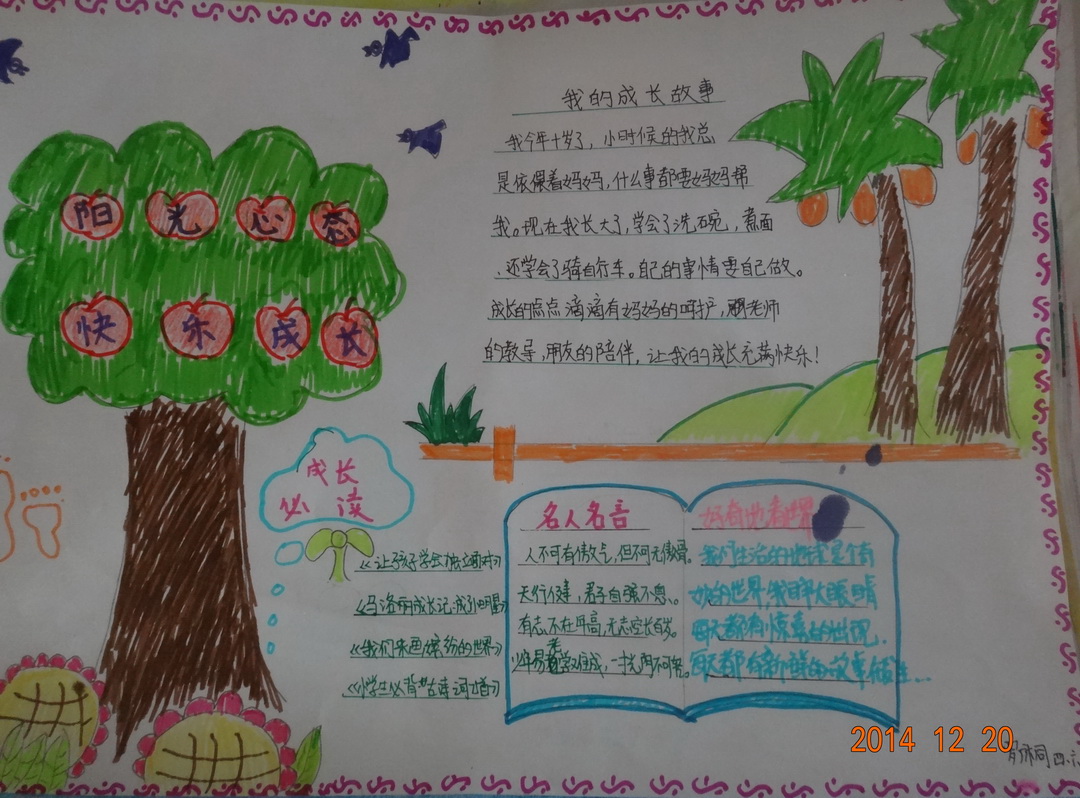 阳光心态
快乐成长
我的成长故事
我今年十岁了，小时候的我总
是依偎着妈妈，什么事都要妈妈帮
我。现在我长大了，学会了洗碗，煮面
，还学会了骑自行车。自己的事情要自己做。
成长的点点滴滴有妈妈的呵护，老师
的教导，朋友的陪伴，让我的成长充满快乐！
成长
必读
《让孩子学会独立面对》
《马洛丽成长记·成了小明星》
《我们来画缤纷的世界》
《小学生必背古诗词
名人名言
人不可有傲气，但不可无傲骨。
天行健，君子自强不息。
有志不在年高，无志空长百岁。
少年易老学难成，一光两不可轻。
我们生活的地球是个奇
妙的世界，我睁大眼睛
每天都有惊喜的出现，
每天都有新鲜的故事发生...
2014 12 20